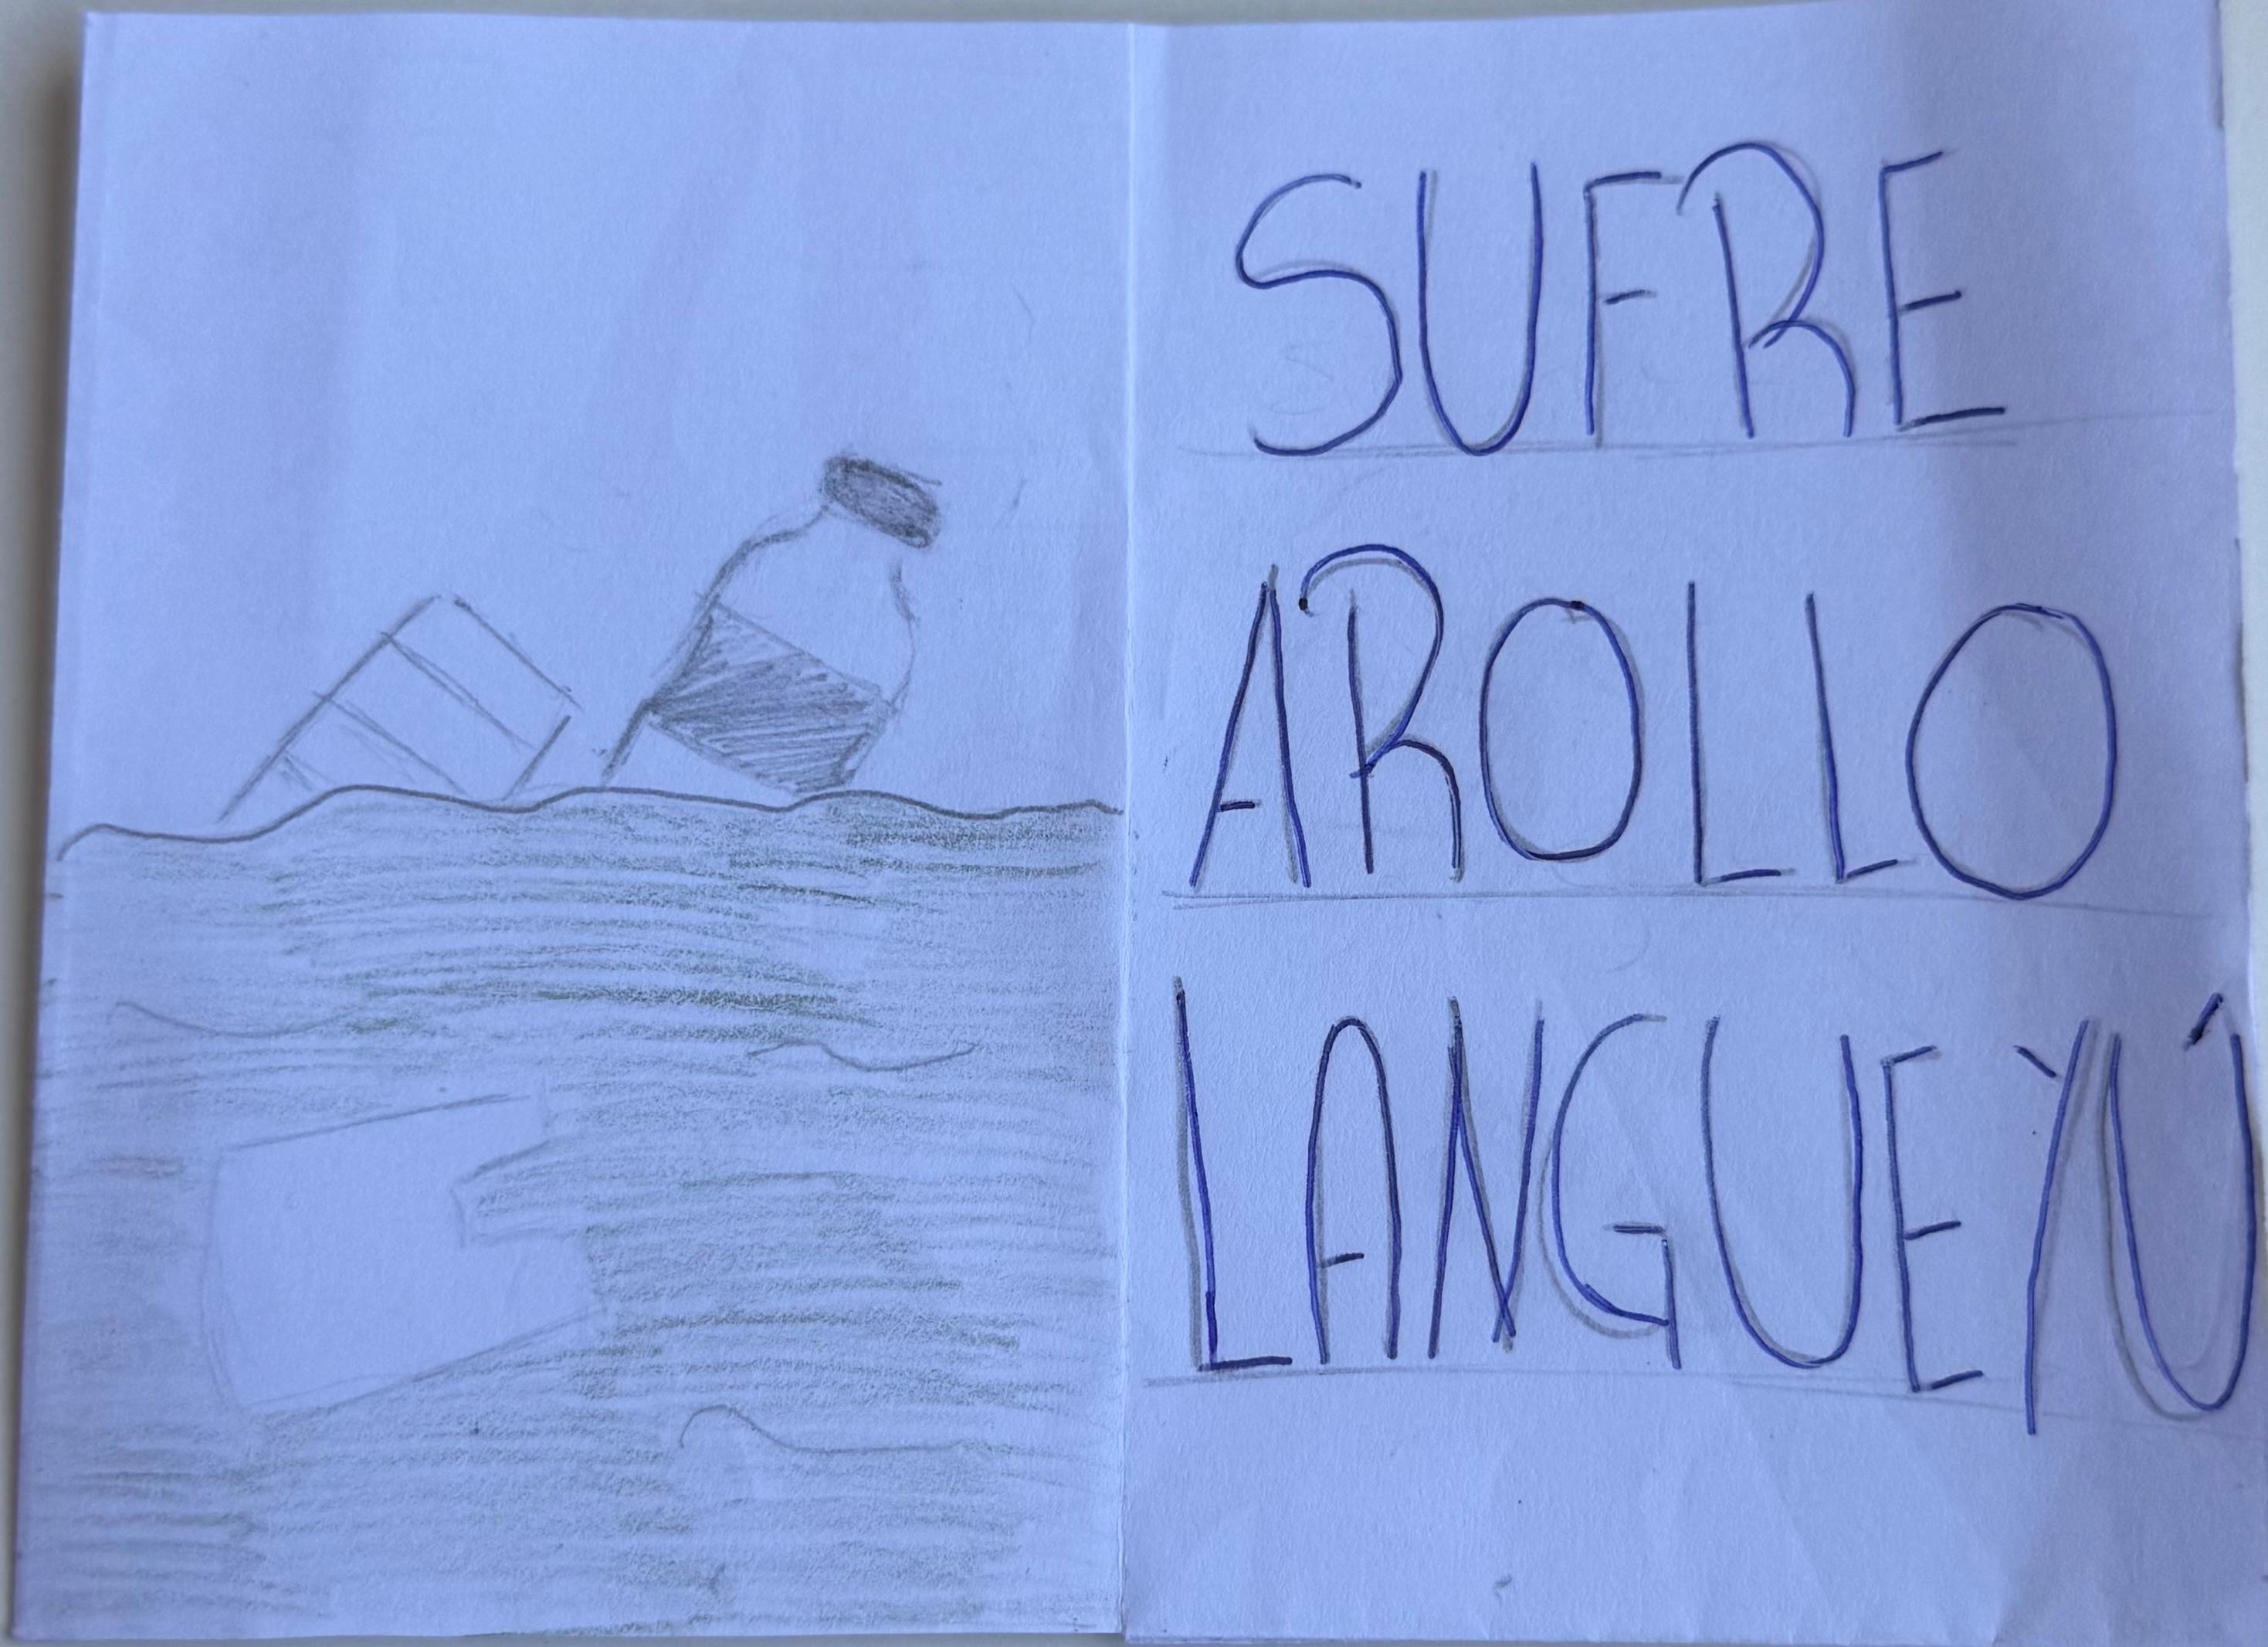 SUFRE
AROLLO
LANGUEYÚ